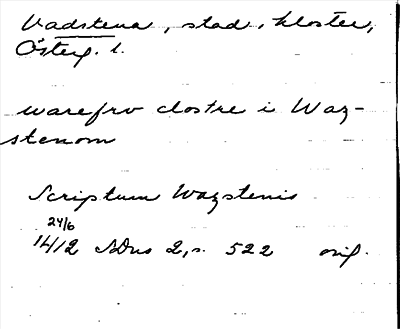 Vadstena, stad, kloster,
Österg. l.
warefrv clostre i Waz-
stenom
Scriptum Wazstenis
24/6
1412 SDns 2, s. 522 orig.